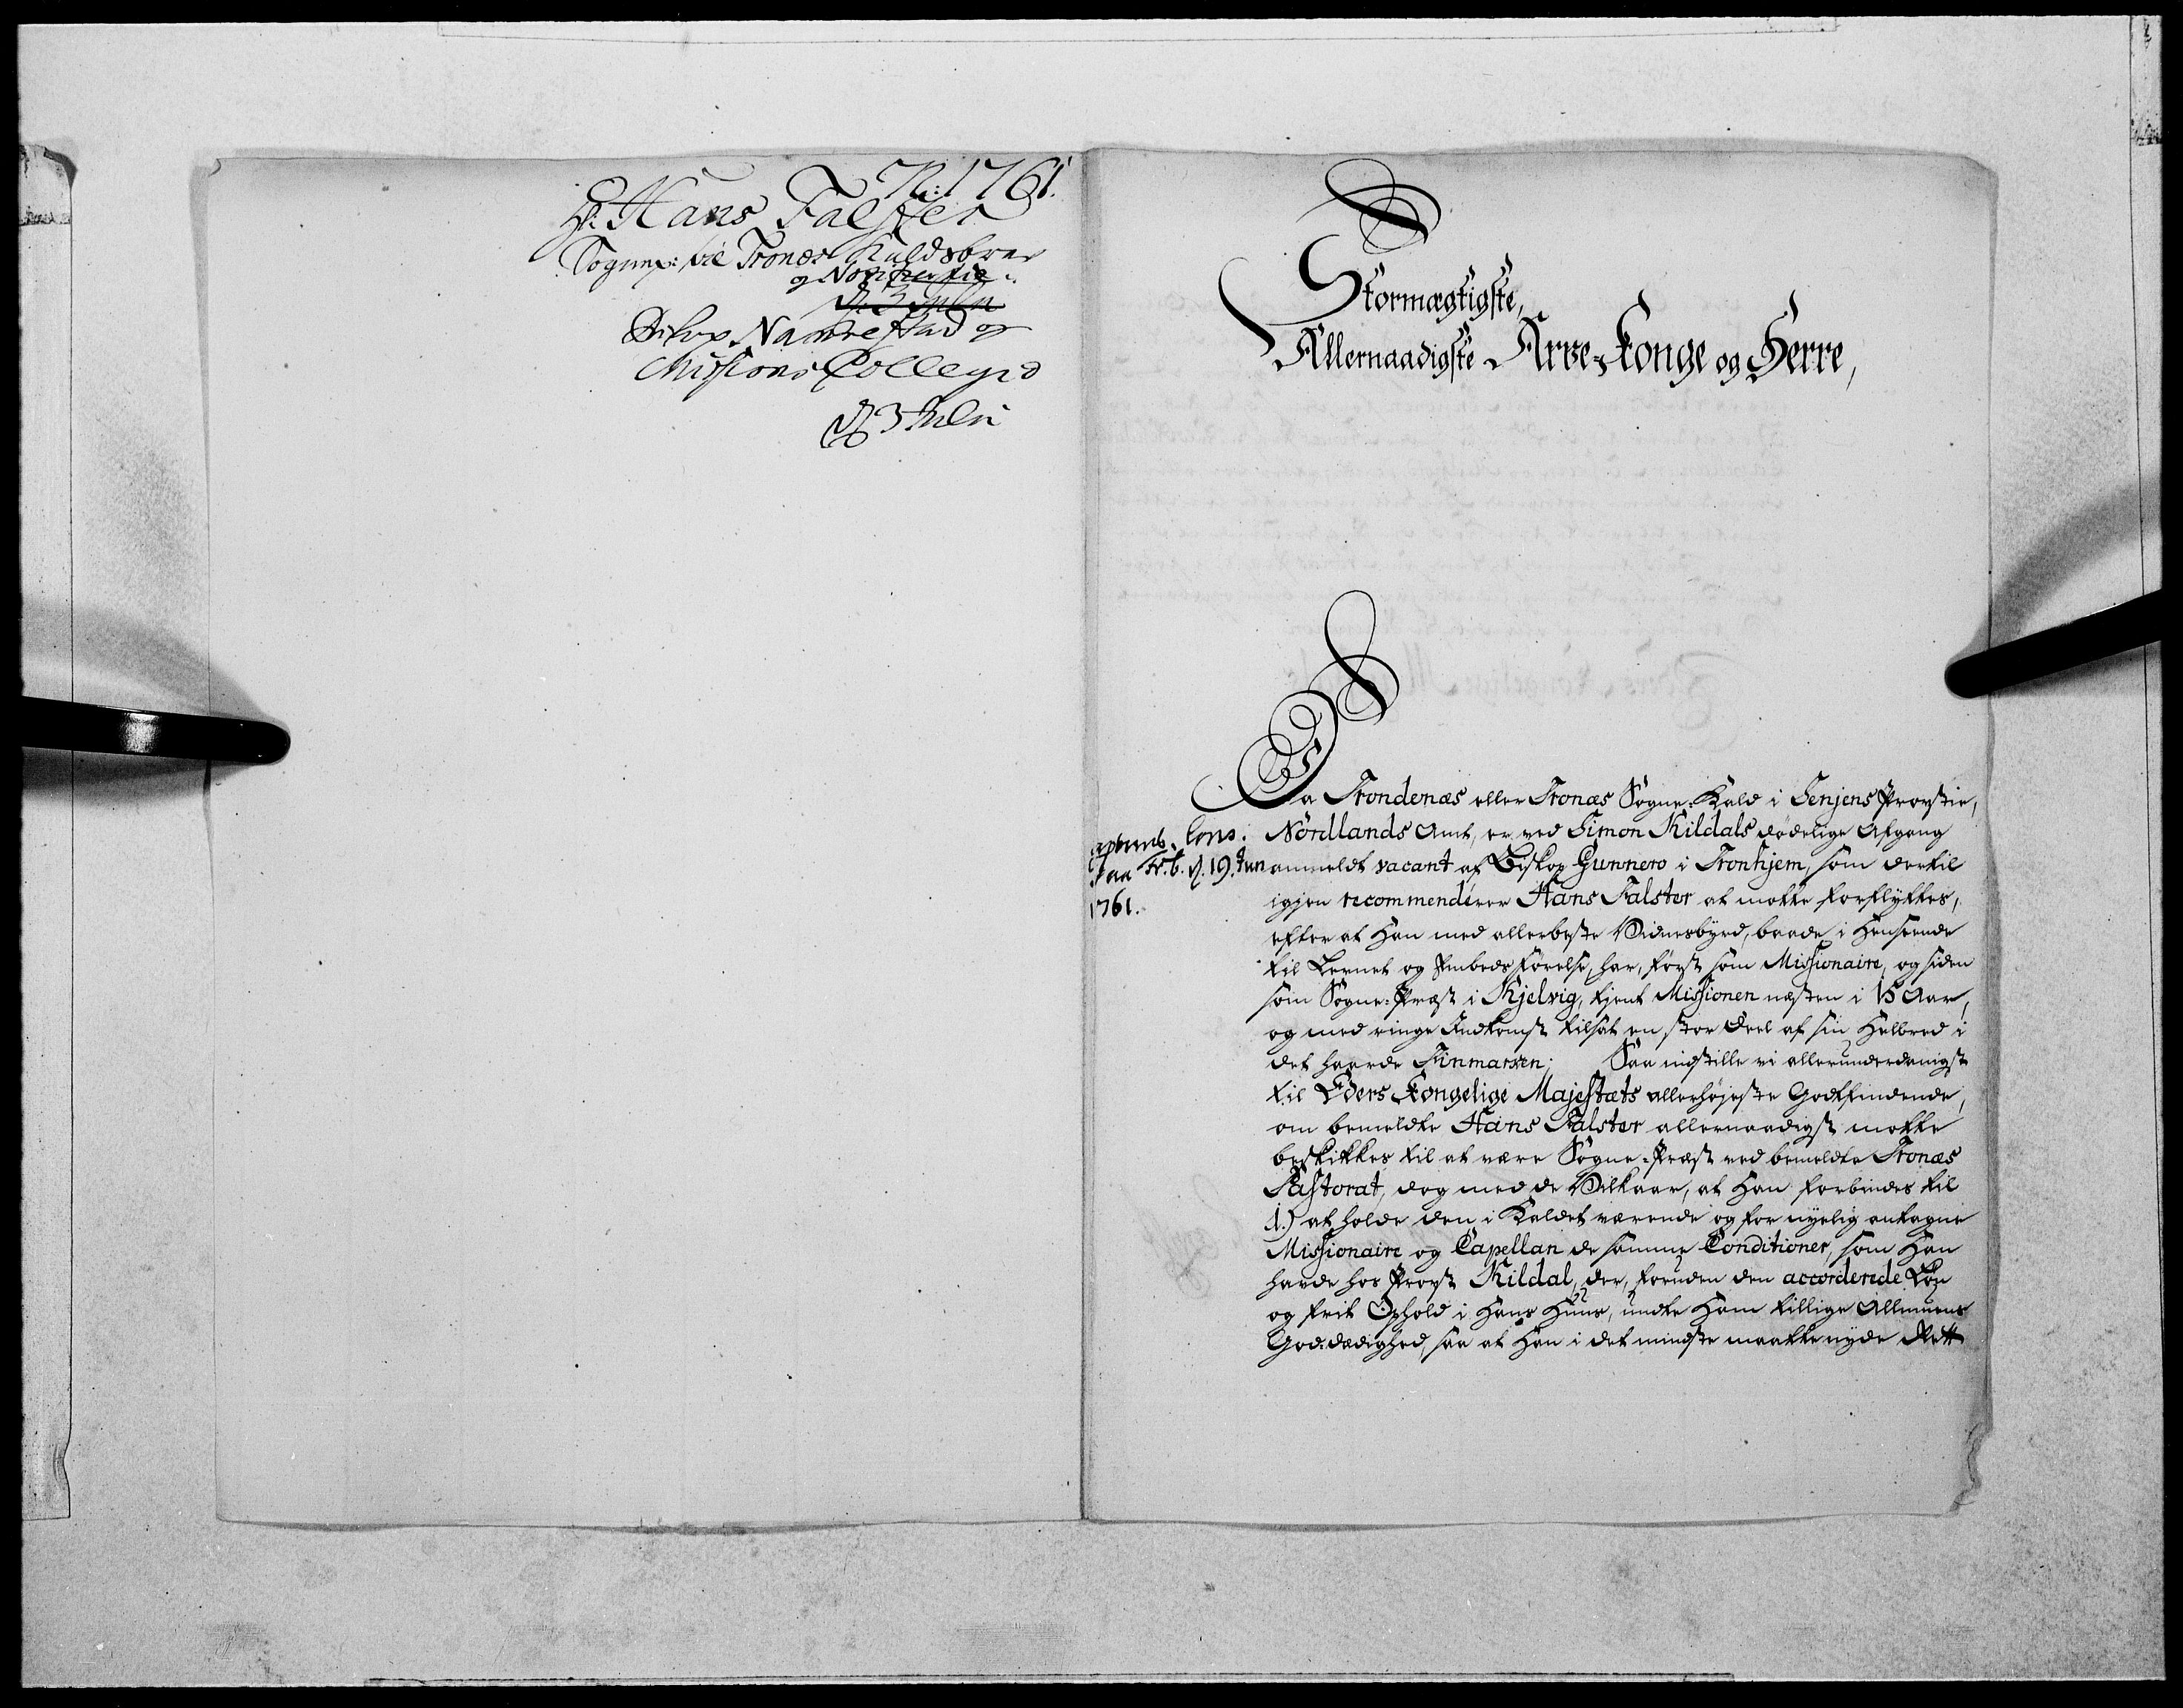 N: 1761.
Hr. Hans Falster
Sognepr: til Tronæs Kaldsbrev
og Notif.
d. 3 Julii
Bishop Nannestad og
Missions Collegio
d 3 Julii
Stormægtigste,
Allernaadigste Arve-Konge og Herre,
Da Trondenæs eller Tronæs Sogne-Kald i Senjens Provstie,
Nordlands Amt, er ved Simon Kildals dödelige Afgang
anmeldt vacant af Biskop Gunnero i Tronhjem, som dertil
igjen recommenderer Hans Falster at motte forflyttes,
efter at Han med allerbeste Vidnesbyrd, baade i Henseende
til Lernet og Embeds Förelse, har, först som Missionaire, og siden
som Sogne-Præst i Kjelvig, tjent Missionen næsten i 15 Aar,
og med ringe Indkomst tilsat en stor Deel af sin Helbred i
det haarde Finmarken; Saa indstille vi allerunderdanigst
til Eders Kongelige Majestæts allerhöjeste Godtfindende,
om bemeldte Hans Falster allernaadigst motte
beskikkes til at være Sogne-Præst ved bemeldte Tronæs
Pastorat, dog med de Vilkaar, at Han forbindes til
1.) at holde den i Kaldet værende og for nyelig antagne
Missionaire og Capellan de samme Conditioner, som Han
havde hos Provst Kildal, der, foruden den accorderede Lön
og frit Ophold i Hans Huus, undte Ham tillige Allmuens
God-dædighed, saa at Han i det mindste maatte nyde Rett
approb. Cons.
paa Fr.b. d. 19. Jun
1761.